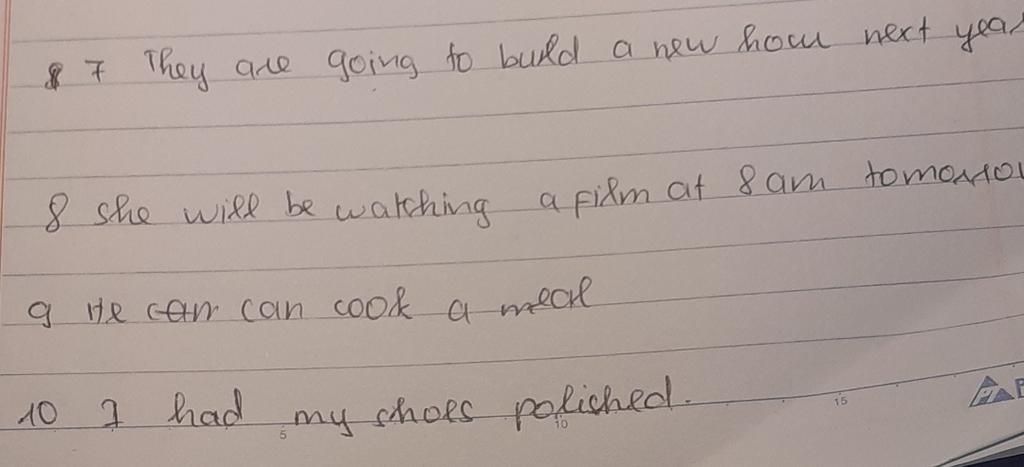 8 7 They are going to build a new hou next year
8 she will be watching a film at 8 am tomorrow
9 He can can cook a meal
10 I had my shoes polished.
5 10 15